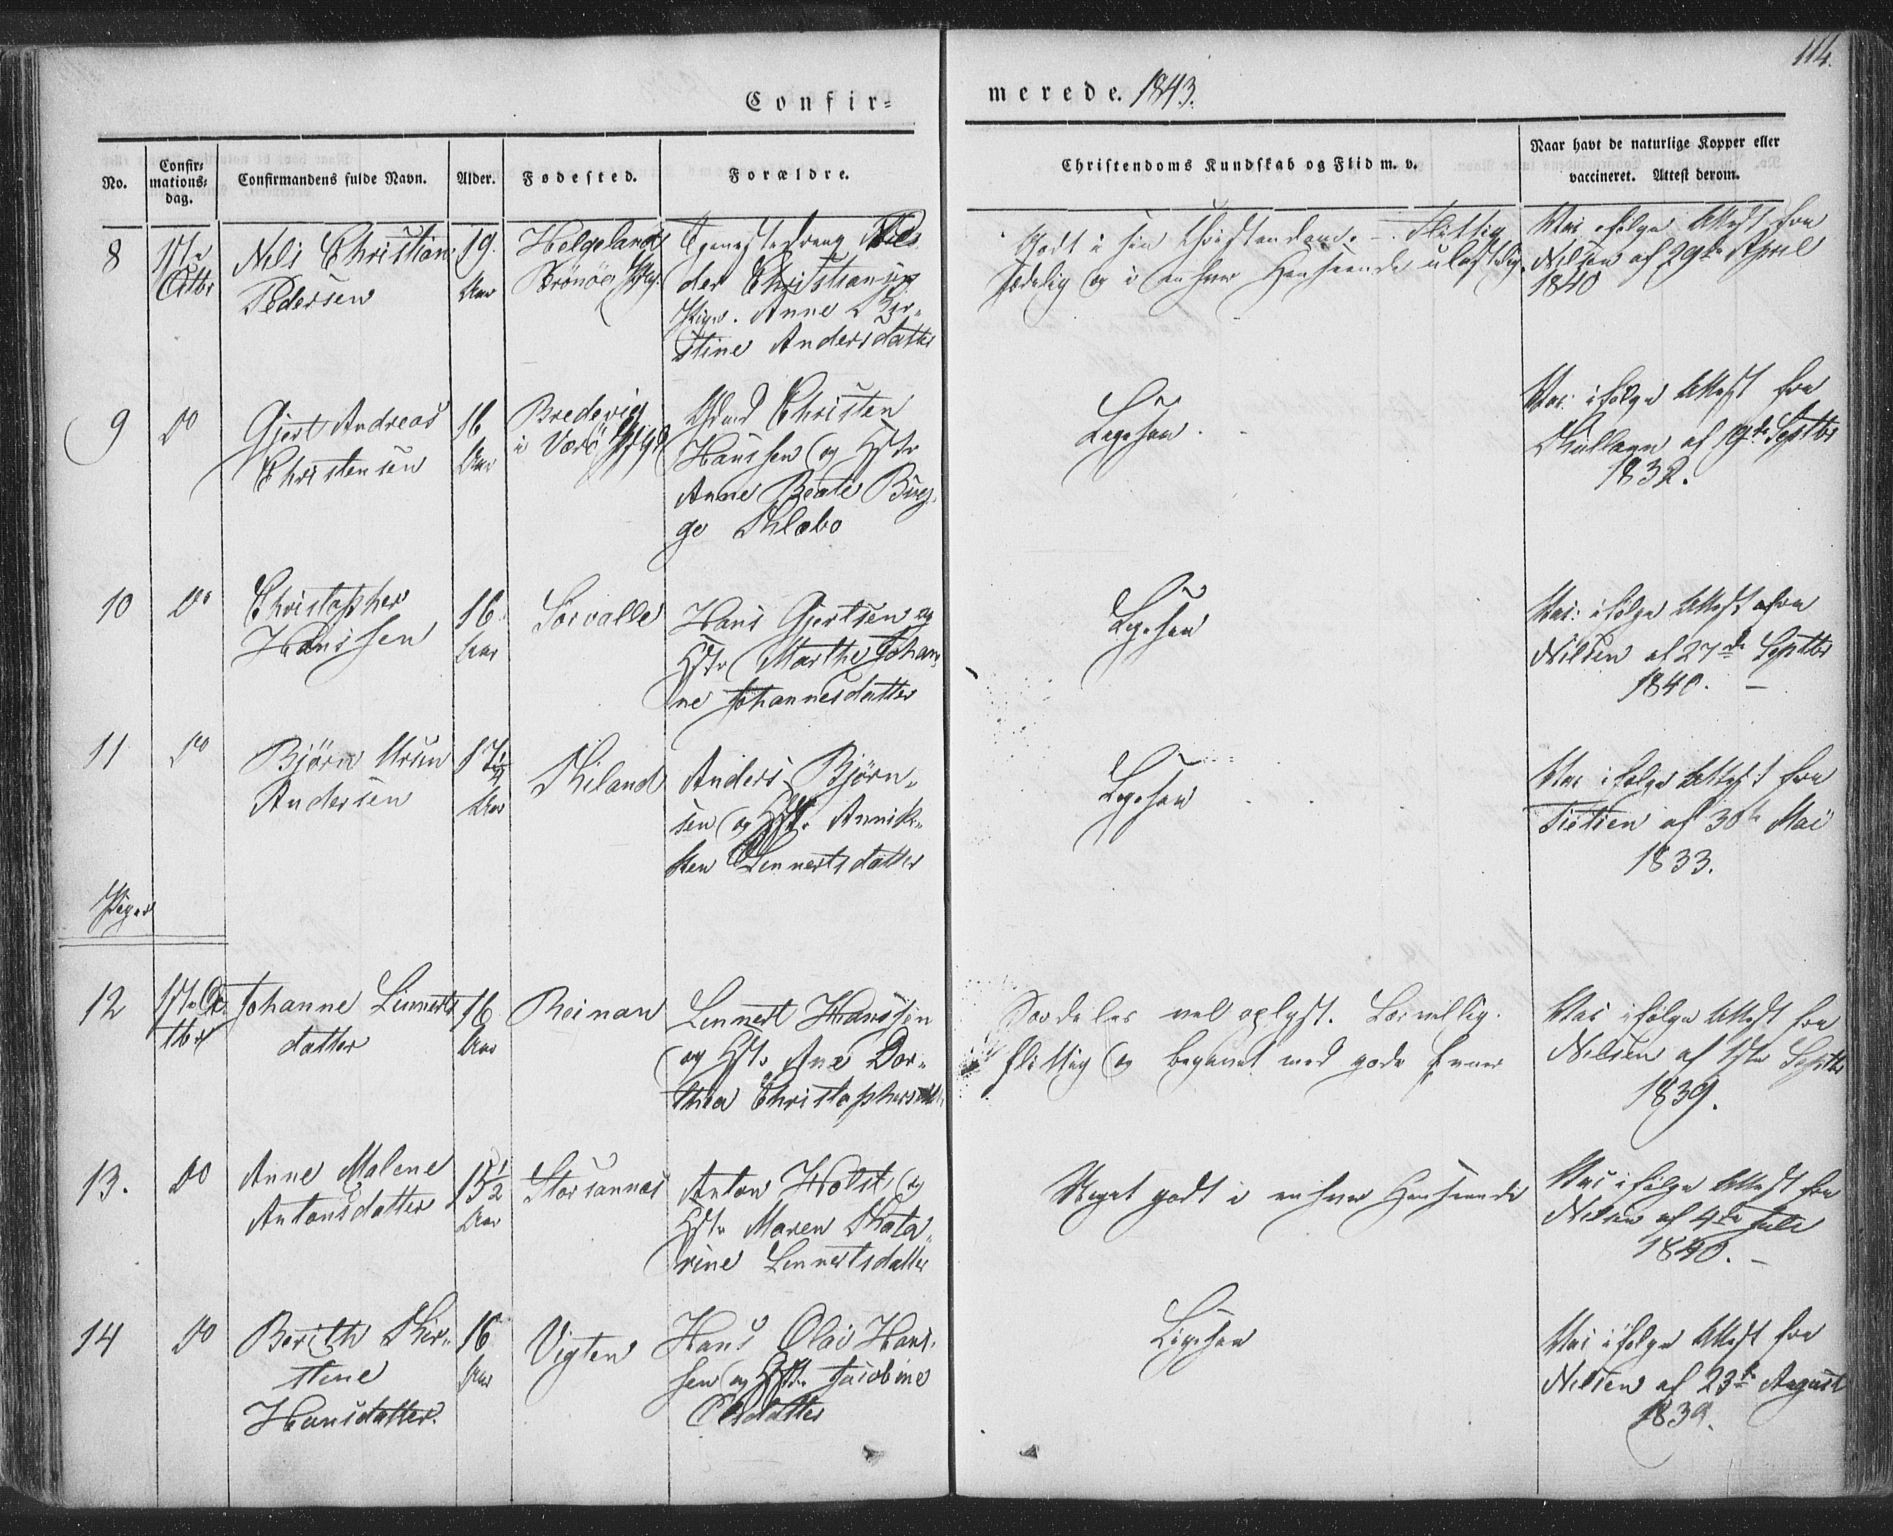 114.
Confir=
merede. 1843.
No.
Confir=
mations=
dag.
Confirmandens fulde Navn.
Alder.
Fødested.
Forældre.
Christendoms Kundskab og Flid m. v.
Naar havt de naturlige Kopper eller
vaccineret. Attest derom.
8
Nils Christian
Pedersen
19.
Aar
Helgeland
Brönöe
der Christiansen
Anne
stine Andersdatter
Godt i sin Christendom. Flittig
sædelig og i enhver Henseende
Vac. ifølge Attest fra
Nilsen af 29de April
1840
9
Do
Gjert Andreas
Christensen
16
Aar
Bredevig
i Værö
Christen
Hanssen og Hstr
Anne Beate
Klæbo
Ligesaa
Vac: ifølge Attest fra
af 19de Septbr
1832.
10
Do
Christopher
Hanssen
16
Aar
Sörvalle
Hans Gjertsen og
Hstr Marthe Johan=
ne Johannesdatter
Ligesaa
Vac: ifølge Attest fra
Nilsen af 27de Septbr
1840. –
11
Do
Björn Ursin
Andersen
Aar
Kiland
Anders Björn=
sen og Hstr. Annik=
ken Lennertsdatter
Ligesaa
Vac ifølge Attest fra
af 30te Mai
1833.
Piger
12
Johanne Lennerts
datter
16
Aar
Reinan
Lennert Hanssen
og Hstr Ane Dor=
thea Christophersdtr
Særdeles vel oplyst. Lærvillig.
flittig og begavet med gode Evner
Vac ifølge Attest fra
Nilsen af Septbr
1839.
13.
Do
Anne Malene
Antonsdatter
15 1/2
Aar
Storsannes
Anton Holst og
Hstr Maren Kata=
rine Lennertsdatter
Meget godt i enhver Henseende
Vac ifølge Attest fra
Nilsen af 4de Juli
1840. –
14
Do
Berith Kir=
stine
Hansdatter.
16
Aar
Vigten
Hans Olai Hans=
sen og Hstr. Jacobine
Ligesaa
Vac ifølge Attest fra
Nilsen af 23de August
1839.